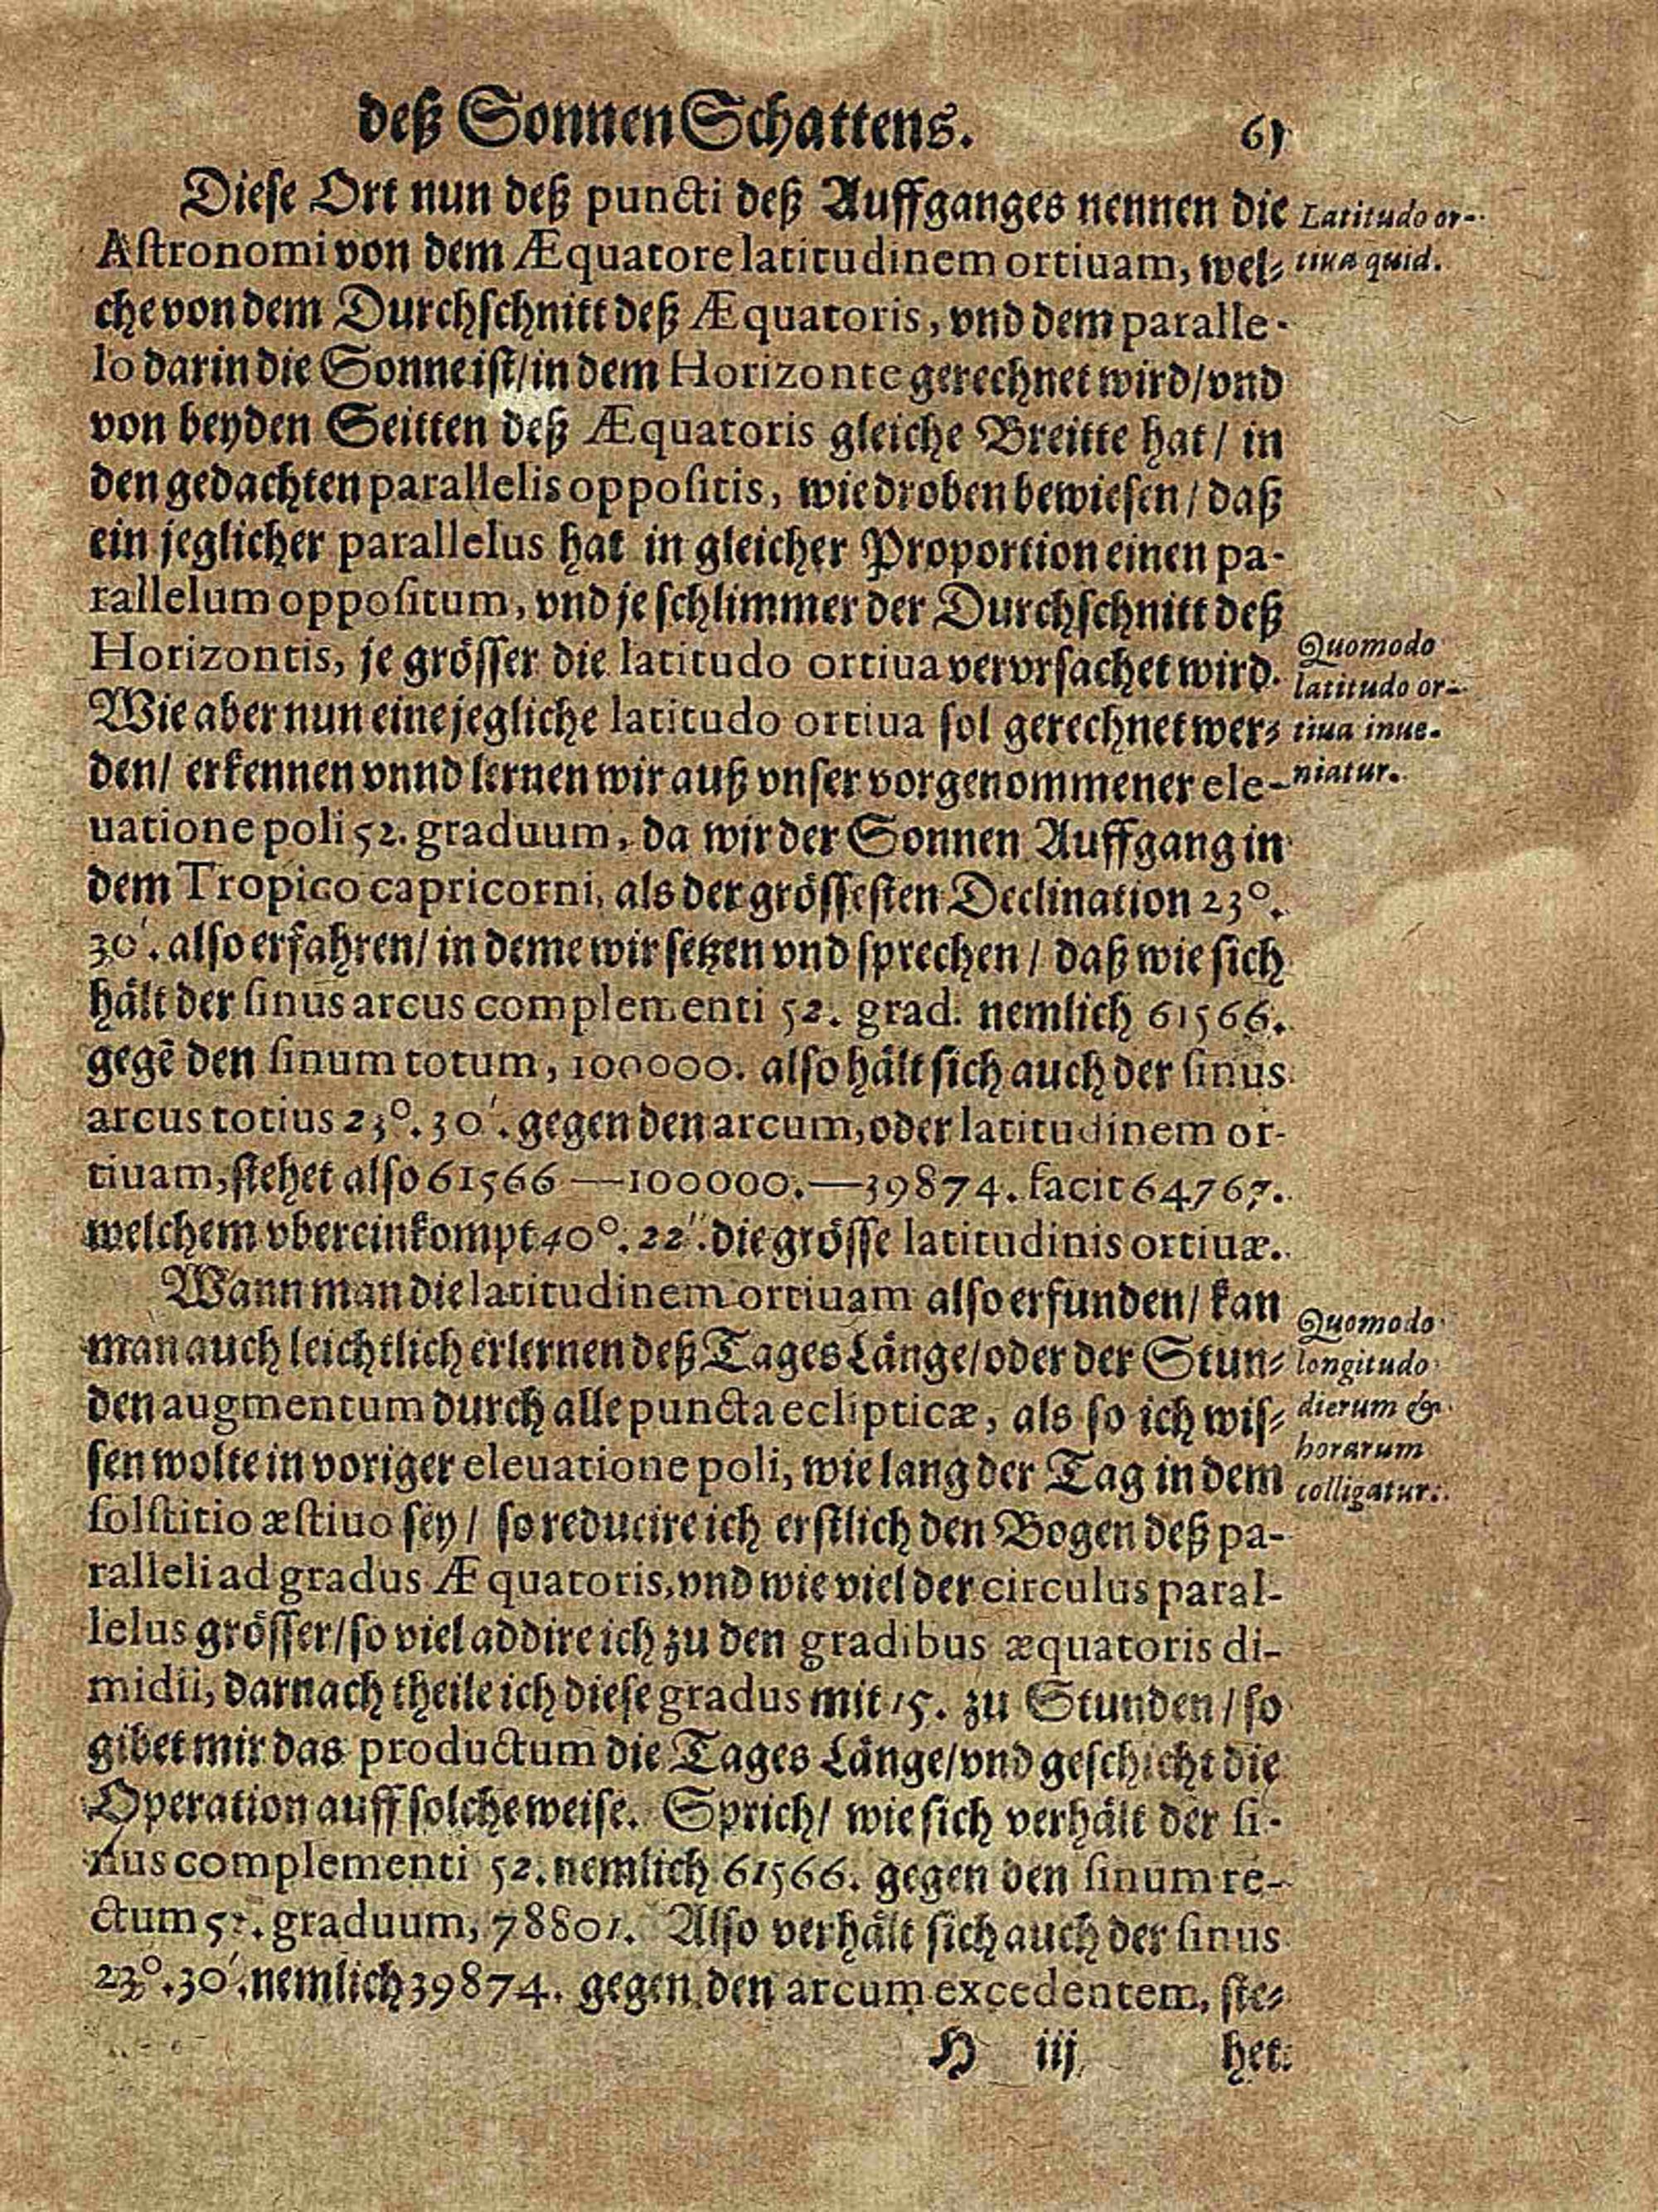 deß Sonnen Schattens. 61
Diese Ort nun deß puncti deß Auffganges nennen die
Astronomi von dem Æquatore latitudinem ortiuam, wel⸗
che von dem Durchschnitt deß Æquatoris, vnd dem paralle-
lo darin die Sonne ist/ in dem Horizonte gerechnet wird/ vnd
von beyden Seitten deß Æquatoris gleiche Breitte hat/ in
den gedachten parallelis oppositis, wie droben bewiesen/ daß
ein jeglicher parallelus hat in gleicher Proportion einen pa-
rallelum oppositum, vnd je schlimmer der Durchschnitt deß
Horizontis, je grösser die latitudo ortiua verursachet wird.
Wie aber nun eine jegliche latitudo ortiua sol gerechnet wer⸗
den/ erkennen vnnd lernen wir auß vnser vorgenommener ele-
uatione poli 52. graduum, da wir der Sonnen Auffgang in
dem Tropico capricorni, als der grössesten Declination 23°.
30′. also erfahren/ in deme wir setzen vnd sprechen/ daß wie sich
hält der sinus arcus complementi 52. grad. nemlich 61566.
gegē den sinum totum, 100000. also hält sich auch der sinus
arcus totius 23°. 30′. gegen den arcum, oder latitudinem or-
tiuam, stehet also 61566 —100000.—39874. facit 64767.
welchem vbereinkompt 40°. 22″. die grösse latitudinis ortiuæ.
Wann man die latitudinem ortiuam also erfunden/ kan
man auch leichtlich erlernen deß Tages Länge/ oder der Stun⸗
den augmentum durch alle puncta eclipticæ, als so ich wis⸗
sen wolte in voriger eleuatione poli, wie lang der Tag in dem
solstitio æstiuo sey/ so reducire ich erstlich den Bogen deß pa-
ralleli ad gradus Æquatoris, vnd wie viel der circulus paral-
lelus grösser/ so viel addire ich zu den gradibus æquatoris di-
midii, darnach theile ich diese gradus mit 15. zu Stunden/ so
gibet mir das productum die Tages Länge/ vnd geschicht die
Operation auff solche weise. Sprich/ wie sich verhält der si-
nus complementi 52. nemlich 61566. gegen den sinum re-
ctum 52. graduum, 78801. Also verhält sich auch der sinus
23°. 30′. nemlich 39874. gegen den arcum excedentem, ste⸗
H iij het
Latitudo or-
tiua quid.
Quomodo
latitudo or-
tiua inue-
niatur.
Quomodo
longitudo
dierum &
horarum
colligatur.